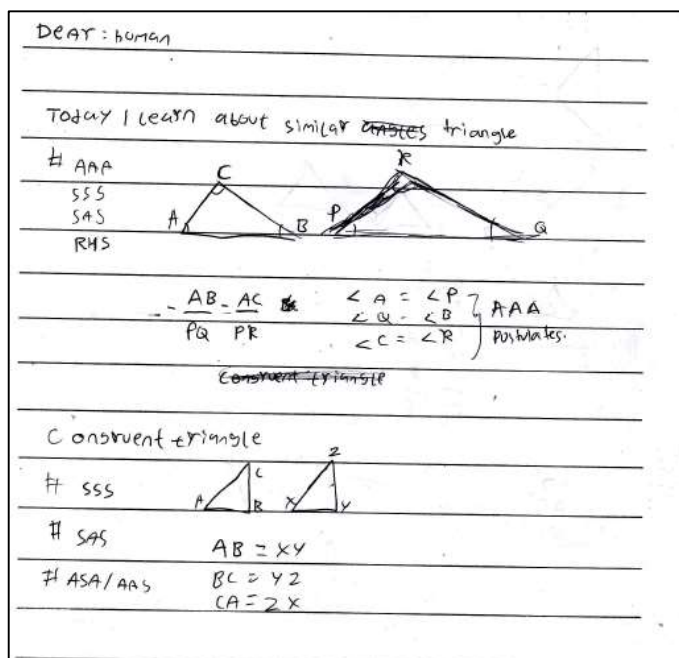 Dear: human
Today I learn about similar angles triangle
# AAA
SSS
SAS
RHS
C
A
B
R
P
Q
AB = AC
PQ PR
∠A = ∠P
∠Q = ∠B
∠C = ∠R
AAA
Postulates.
Congruent triangle
Congruent triangle
# SSS
A
C
B
X
Z
Y
# SAS
AB = XY
# ASA/AAS
BC = YZ
CA = ZX